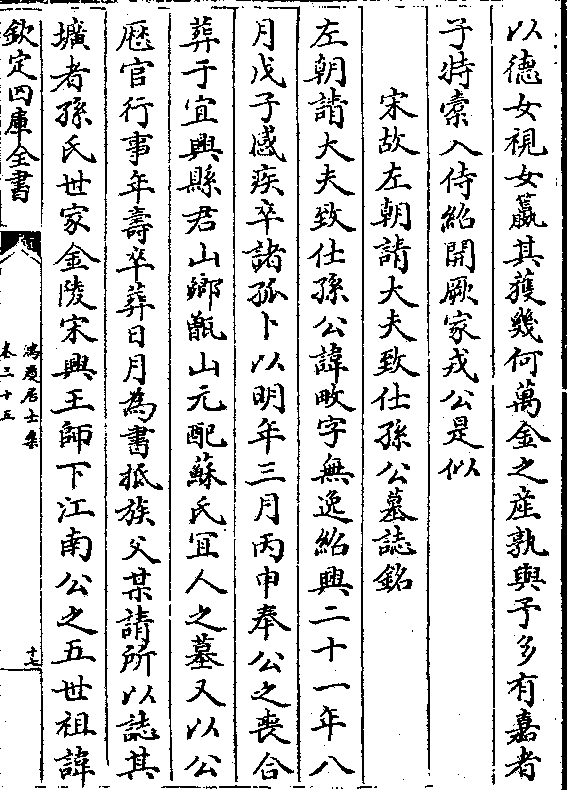 以德女視女蠃其獲幾何萬金之產孰與予多有嘉者
子特橐入侍紹開厥家戎公是似
宋故左朝請大夫致仕孫公墓誌銘
左朝請大夫致仕孫公諱畋字無逸紹興二十一年八
月戊子感疾卒諸孤卜以明年三月丙申奉公之喪合
葬于宜興縣君山鄉甑山元配蘇氏宜人之墓又以公
歷官行事年壽卒葬日月為書抵族父某請所以誌其
壙者孫氏世家金陵宋興王師下江南公之五世祖諱
欽定四庫全書
鴻慶居士集
卷三十五
十七